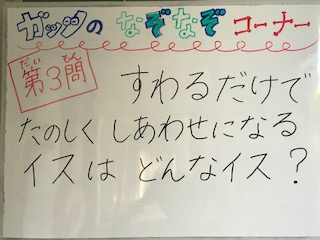 ガッツの なぞなぞ コーナー
だい もん
第3問 すわるだけで
たのしく しあわせになる
イスは どんなイス?